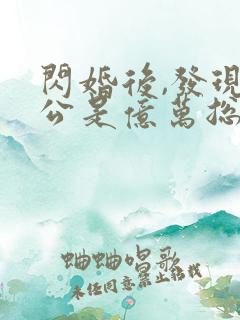 閃婚後,發現
公是億萬總
蛐蛐唱歌
未經同意禁止轉載